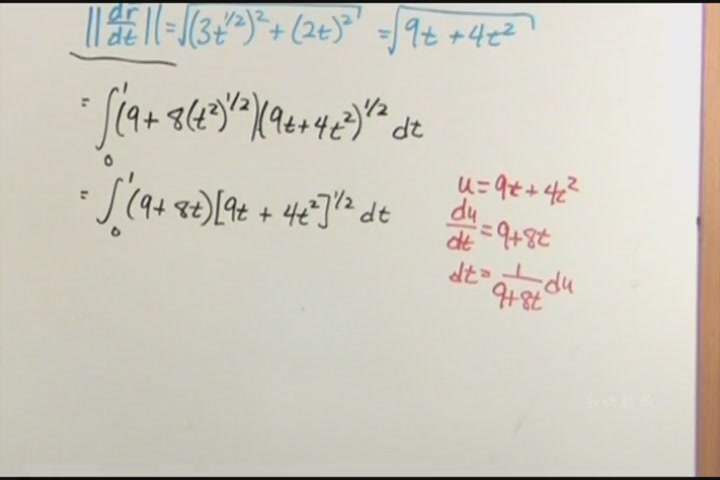 ||dr/dt|| = √((3t^{1/2})² + (2t)²) = √(9t + 4t²)
= ∫₀¹ (9 + 8(t²)^{1/2})(9t + 4t²)^{1/2} dt
= ∫₀¹ (9 + 8t)[9t + 4t²]^{1/2} dt
u = 9t + 4t²
du/dt = 9 + 8t
dt = 1/(9+8t) du